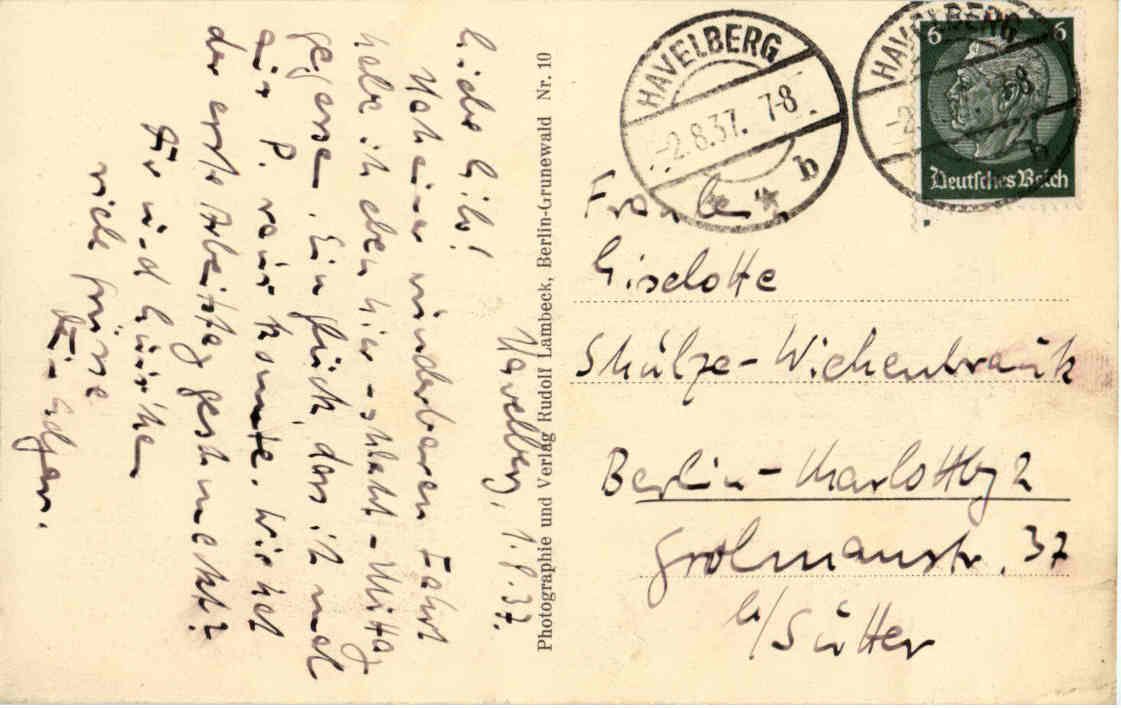 Havelberg, 1.8.37.
Liebe Gilo!
Nach einer wunderbaren Fahrt
habe ich eben hier - schlecht - Mittag
gegessen. Ein Glück, dass ich mal
aus P. raus konnte. Wie hat
der erste Arbeitstag geschmeckt?
Dir und
viele Grüsse
Dein Edgar.
Photographie und Verlag Rudolf Lambeck, Berlin-Grunewald Nr. 10
HAVELBERG
-2.8.37. 7-8
b
HAVELBERG
-2. 7-8
b
6 6
Deutsches Reich
Fräulein
Giselotte
Schulze-Wichenbrauk
Berlin-Charlottbg 2
Grolmanstr. 37
b/Sütter